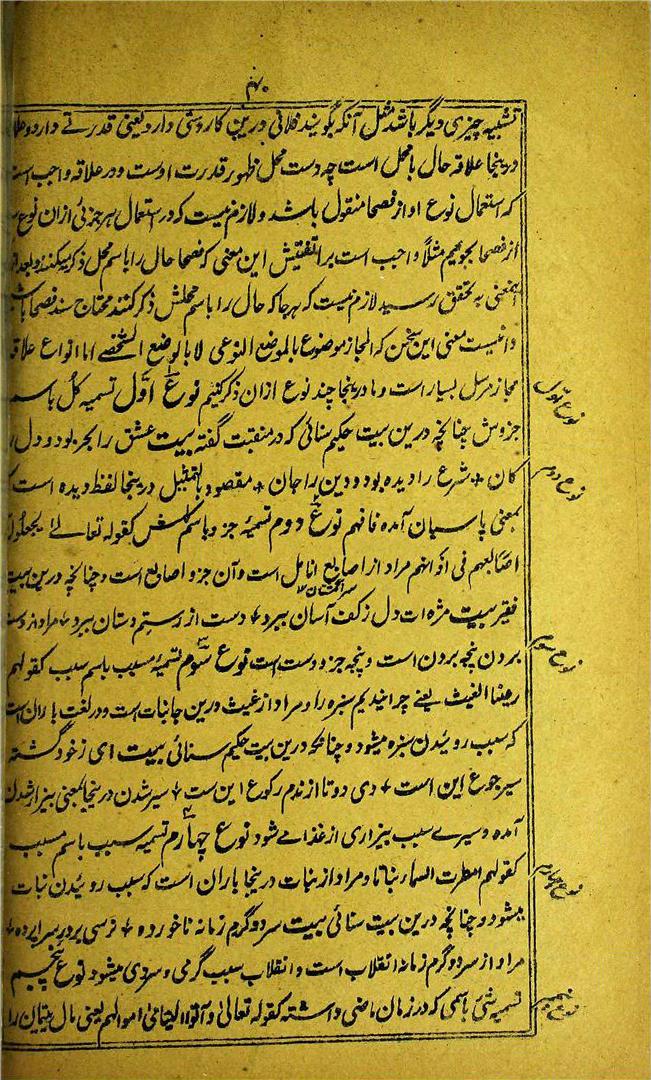 ۴۰
تشبیه چیزی دیگر باشد مثل آنکه گویند فلانی درین کار دستی دارد یعنی قدرتے دارد و علا
درینجا علاقه حال با محل است چه دست محل ظهور قدرت اوست و در علاقه واجب است
که استعمال نوع او از فصحا منقول باشد و لازم نیست که در استعمال هر جزئی ازان نوع
از فصحا بجوئیم مثلاً واجب است بر ما تفتیش این معنی که فصحا حال را باسم محل ذکر میکنند و بعد
اینمعنی به تحقق رسید لازم نیست که هر جا که حال را باسم محلش ذکر کنند محتاج سند فصحا باش
و اینست معنی این سخن که المجاز موضوع بالوضع النوعی لا بالوضع الشخصے اما انواع علاقه
مجاز مرسل بسیار است و ما درینجا چند نوع ازان ذکر کنیم نوع اوّل تسمیه کل باسم
جزوش چنانچه درین بیت حکیم سنائی که در منقبت گفته بیت عشق را بحر بود و دل را
کان + شرع را دیده بود و دین را جان + مقصود بالتمثیل درینجا لفظ دیده است که
بمعنی پاسبان آمده فافهم نوع دوم تسمیهٔ جزو باسم کلش کقوله تعالےٰ یجعلون
اصابعهم فی آذانهم مراد از اصابع انامل است و آن جزو اصابع است و چنانچه درین بیت
سر انگشتان ۱۲
فقیر بیت مژه ات دل ز کف آسان ببرد + دست از رستم دستان ببرد + مراد از دست
بردن پنجه بردن است و پنجه جزو دست است نوع سوم تسمیهٔ مسبب باسم سبب کقولهم
رعینا الغیث یعنے چرانیدیم سبزه را و مراد از غیث درین جا نبات است و در لغت باران است
که سبب روئیدن سبزه میشود و چنانچه درین بیت حکیم سنائی بیت ای ز خود گشته
سیر جوع این است + وی دوتا از ندم رکوع این ست + سیر شدن درینجا بمعنی بیزار شدن
آمده و سیرے سبب بیزاری از غذا مے شود نوع چهارم تسمیه سبب باسم مسبب
کقولهم امطرت السماء نباتا و مراد از نبات درینجا باران است که سبب روئیدن نبات
میشود و چنانچه درین بیت سنائی بیت سرد و گرم زمانه ناخورده + نرسی بر در سراپرده +
مراد از سرد و گرم زمانه انقلاب است و انقلاب سبب گرمی و سردی میشود نوع پنجم
تسمیه شئ باسمی که در زمان ماضی داشته کقوله تعالیٰ و آتوا الیتامیٰ اموالهم یعنی مال یتیمان را
نوع اوّل
نوع دوم
نوع سوم
نوع چهارم
نوع پنجم